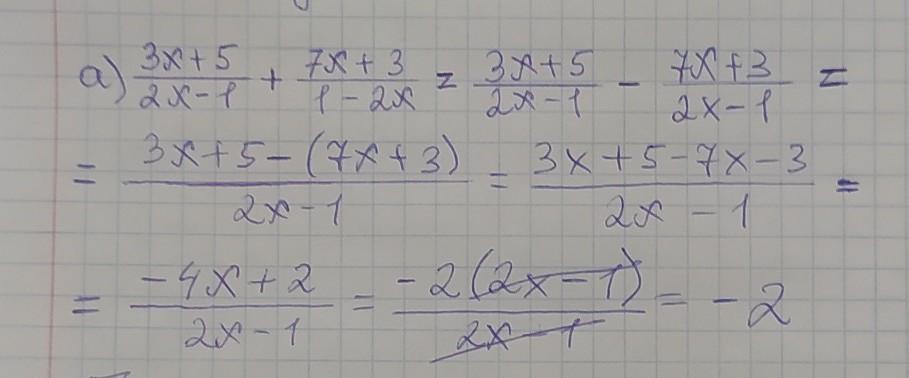 а) (3x+5)/(2x-1) + (7x+3)/(1-2x) = (3x+5)/(2x-1) - (7x+3)/(2x-1) =
= (3x+5-(7x+3))/(2x-1) = (3x+5-7x-3)/(2x-1) =
= (-4x+2)/(2x-1) = (-2(2x-1))/(2x-1) = -2